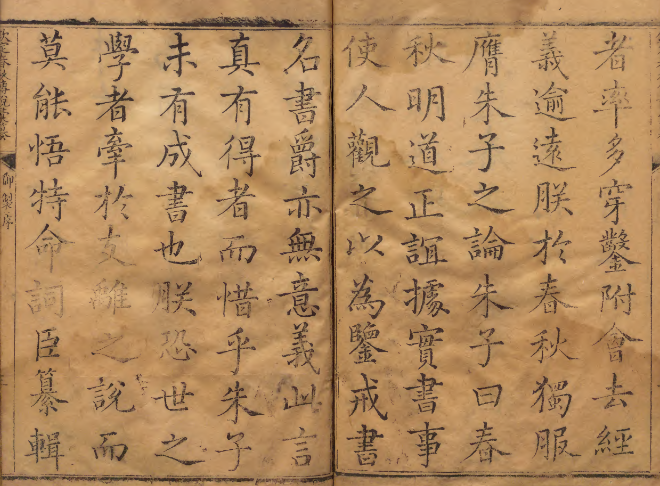 者率多穿鑿附會去經
義逾遠朕於春秋獨服
膺朱子之論朱子曰春
秋明道正誼據實書事
使人觀之以為鑒戒書
名書爵亦無意義此言
真有得者而惜乎朱子
未有成書也朕恐世之
學者牽於支離之說而
莫能悟特命詞臣纂輯
御製序